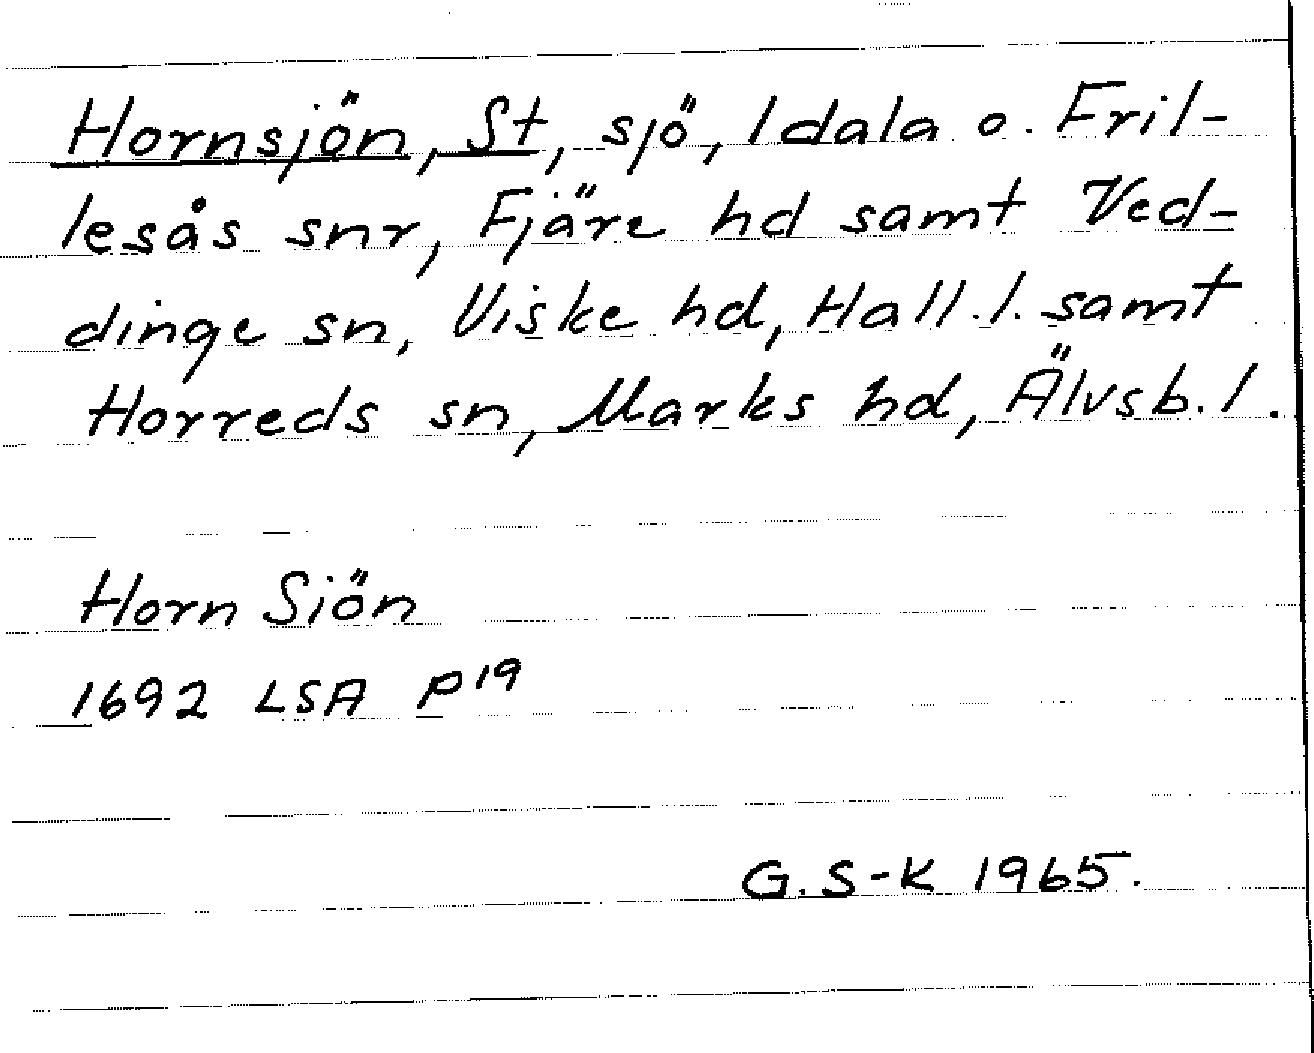 Hornsjön, St, sjö, Idala o. Fril-
lesås snr, Fjäre hd samt Ved-
dinge sn, Viske hd, Hall.l. samt
Horreds sn, Marks hd, Älvsb.l.
Horn Siön
1692 LSA P19
G. S-K 1965.